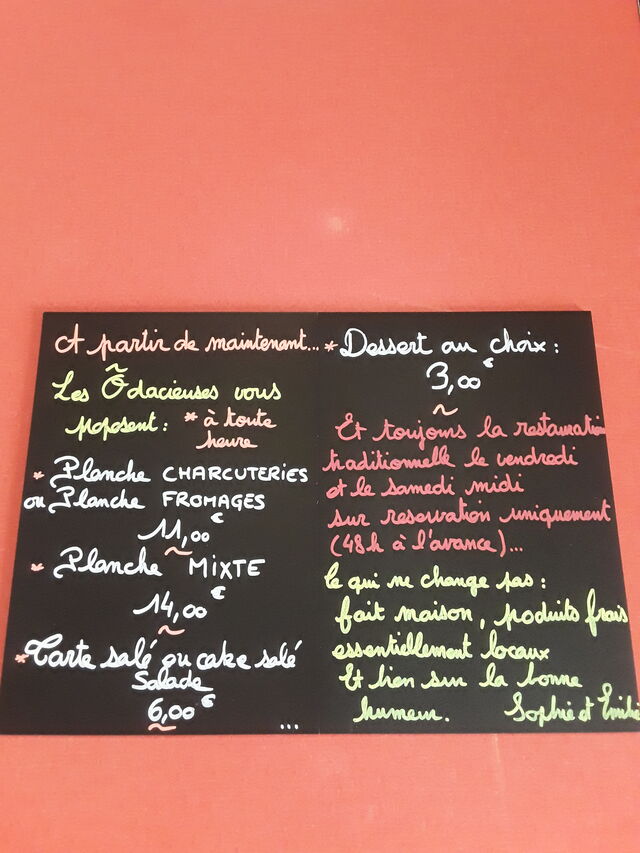 A partir de maintenant...
Les Ôdacieuses vous
proposent : * à toute
heure
* Planche CHARCUTERIES
ou Planche FROMAGES
11,00€
~
* Planche MIXTE
14,00€
~
* Tarte salé ou cake salé
Salade
6,00€
~
...
* Dessert au choix :
3,00€
~
Et toujours la restauration
traditionnelle le vendredi
et le samedi midi
sur reservation uniquement
(48h à l'avance)...
Ce qui ne change pas :
fait maison, produits frais
essentiellement locaux
Et bien sur la bonne
humeur. Sophie et Emilie